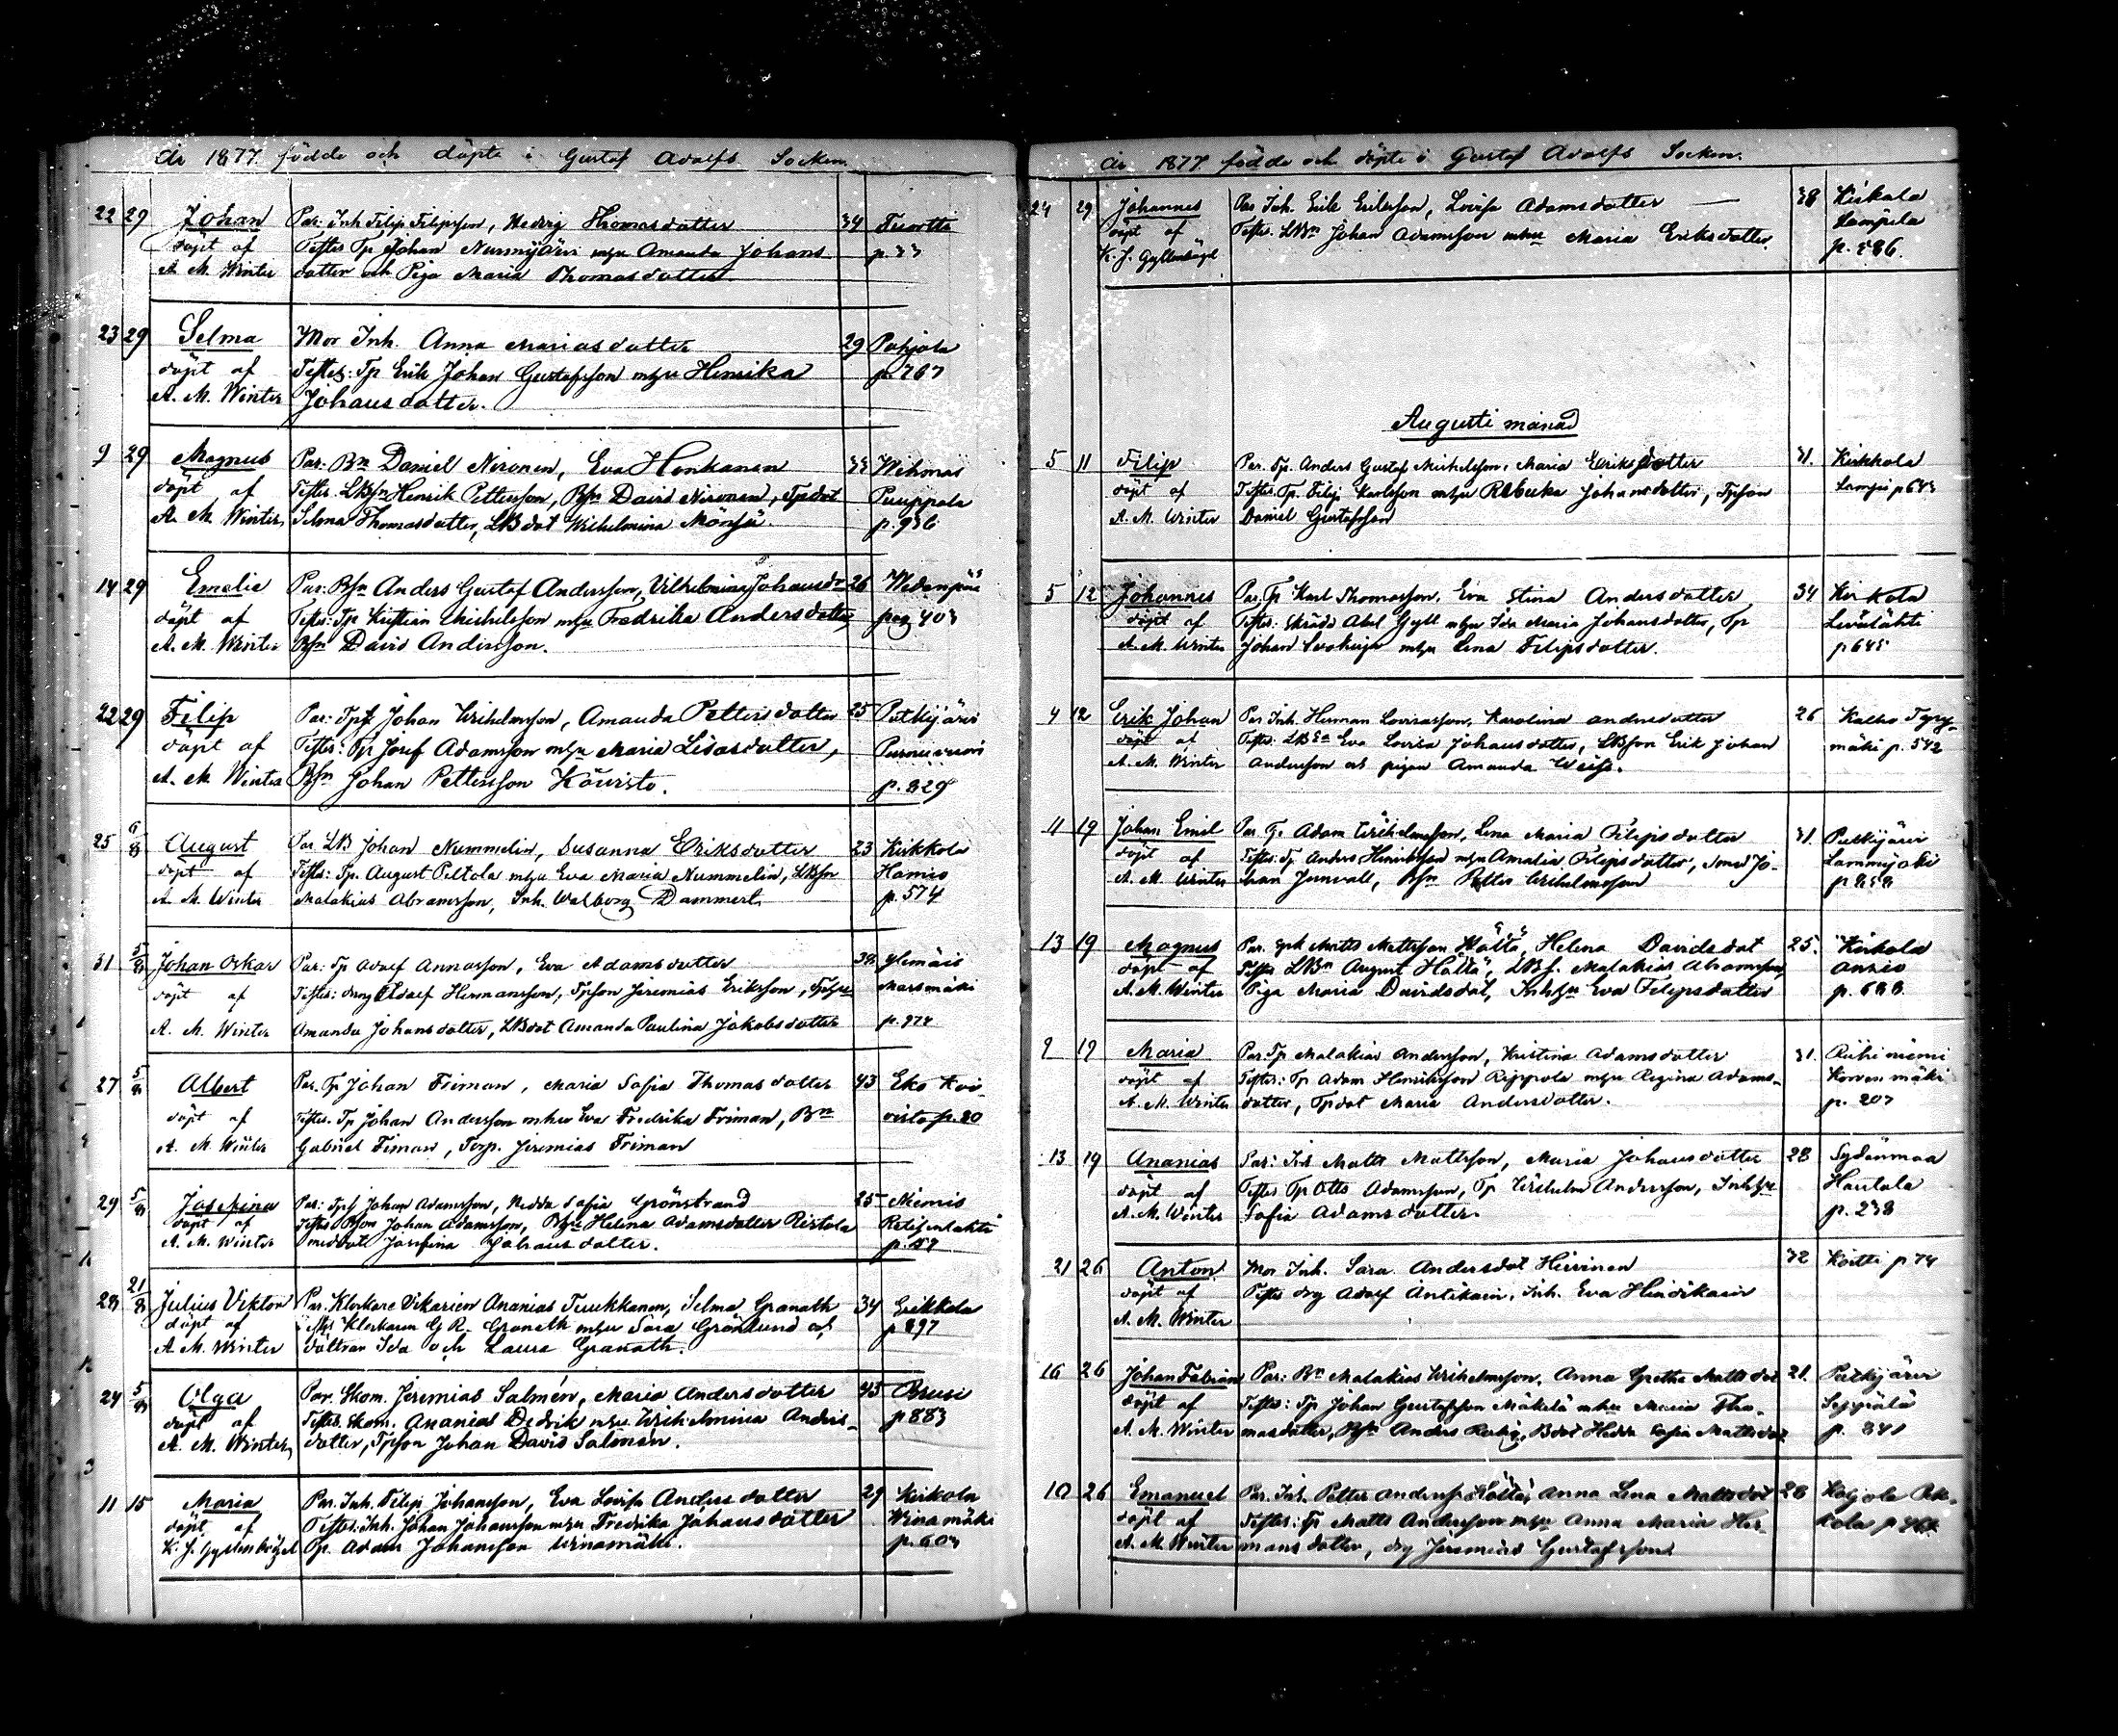 År 1877 födde och döpte i Gustaf Adolfs Socken.
22 29 Johan Par: Inh Filip Filipsson, Hedvig Thomasdotter 34 Tuorttis
döpt af Testes Tp Johan Nurmijärvi m hu Amanda Johans- p. 33
A. M. Winter dotter och Piga Maria Thomasdotter
23 29 Selma Mor Inh. Anna Mariasdotter 29 Pohjola
döpt af Testes: Tp Erik Johan Gustafsson m hu Henrika p. 767
A. M. Winter Johansdotter.
9 29 Magnus Par: Bn Daniel Nironen, Eva Honkanen 33 Wehmas
döpt af Testes. LBsn Henrik Pettersson, Bsn David Nironen, Tpdot Puuppola
A. M. Winter Selma Thomasdotter, LBdot Wilhelmina Mörsä. p. 936
14 29 Emelie Par: Bsn Anders Gustaf Andersson, Vilhelmina Johansdr 26 Wedenpää
döpt af Testes: Tp Kristian Michelsson m hu Fredrika Andersdotter, pag 403
A. M. Winter Bsn David Andersson.
22 29 Filip Par: Tpf Johan Wilhelmsson, Amanda Pettersdotter 25 Putkijärvi
döpt af Testes: Tp Josef Adamsson m hu Maria Lisasdotter,
A. M. Winter Bsn Johan Pettersson Kouvisto. p. 829
25 6/8 August Par LB Johan Nummelin, Susanna Eriksdotter 23 Kirkkola
döpt af Testes: Tp. August Peltola m hu Eva Maria Nummelin, LBson Hamis
A. M. Winter Malakias Abramsson, Inh. Walborg Dammert. p. 574
31 5/8 Johan Oskar Par: Tp Adolf Annasson, Eva Adamsdotter 38 Ylemäis
döpt af Testes: dreng Adolf Hermansson, Tpson Jeremias Eriksson, Marsmäki
A. M. Winter Amanda Johansdotter, LBdot Amanda Paulina Jakobsdotter p. 974
27 5/8 Albert Par. Tp Johan Friman, Maria Sofia Thomasdotter 43 Eko Koi-
döpt af Testes. Tp Johan Andersson m hu Eva Fredrika Friman, Bn visto p. 80
A. M. Winter Gabriel Fiman, Torp. Jeremias Friman
29 5/8 Josefina Par: Tpf Johan Adamsson, Hedda Sofia Grönstrand 25 Niemis
döpt af Testes Bson Johan Adamsson, Bhu Helena Adamsdotter Ristola
A. M. Winter Josefina Johansdotter. p. 57
28 21/8 Julius Viktor Par. Klockare Vikarien Ananias Tuukkanen, Selma Granath 34 Eerikkola
döpt af Klockaren G R. Granath m hu Sara Grönlund och p 897
A. M. Winter döttrar Ida och Laura Granath.
24 5/8 Olga Par. Skom. Jeremias Salmén, Maria Andersdotter 45 Brusi
döpt af Testes. Skom. Ananias Dedrik m hu Wilhelmina Anders- p 883
A. M. Winter dotter, Tpson Johan David Salmén.
11 15 Maria Par. Inh. Filip Johansson, Eva Lovisa Andersdotter 29 Kirkola
döpt af Testes: Inh. Johan Johansson m hu Fredrika Johansdotter Winamäki
K. J. Gyllenbögel Tp. Adam Johansson Winamäki. p. 603
År 1877 födde och döpte i Gustaf Adolfs Socken.
24 29 Johannes Par Inh. Erik Eriksson, Lovisa Adamsdotter 38 Kirkola
döpt af Testes: LBn Johan Adamsson m hu Maria Eriksdotter. Lampila
K. J. Gyllenbögel p. 586.
Augusti månad
5 11 Filip Par. Tp. Anders Gustaf Michelsson, Maria Eriksdotter 31. Kirkkola
döpt af Testes. Tp. Filip Karlsson m hu Rebecka Johansdotter, Tpson Lampi p 643
A. M. Winter Daniel Gustafsson
5 12 Johannes Par. Tp Karl Thomasson, Eva Stina Andersdotter 34 Kirkola
döpt af Testes: Skrädd Abel Gyll m hu Ida Maria Johansdotter, Tp
A. M. Winter Johan m hu Lena Filipsdotter. p 645
4 12 Erik Johan Par Inh. Herman Lovisasson, Karolina Andersdotter 26 Kalho Tyry-
döpt af Testes. Eva Lovisa Johansdotter, LBson Erik Johan mäki p. 542
A. M. Winter Andersson och pigan Amanda
11 19 Johan Emil Par Tp Adam Wilhelmsson, Lena Maria Filipsdotter 31. Putkijärvi
döpt af Testes: Tp. Anders Henriksson m hu Amalia Filipsdotter, Smed Jo- Lammijoki
A. M. Winter han Jernvall, Bsn Petter Wilhelmsson p 858
13 19 Magnus Par. Matts Mattsson Hölttä, Helena Davidsdot 25. Kirkola
döpt af Testes LBn August Hölttä, LBs. Malakias Abramsson, Ansio
A. M. Winter Piga Maria Davidsdot, Inhhu Eva Filipsdotter p. 688
9 19 Maria Par. Tp Malakias Andersson, Kristina Adamsdotter 31. Riihiniemi
döpt af Testes: Tp Adam Henriksson Reppola m hu Regina Adams- Korven mäki
A. M. Winter dotter, Tpdot Maria Andersdotter. p. 207
13 19 Ananias Par: Inh Matts Mattsson, Maria Johansdotter 28 Sydänmaa
döpt af Testes Tp Otto Adamsson, Tp Wilhelm Andersson, Inhhu Hautala
A. M. Winter Sofia Adamsdotter. p. 238
21 26 Anton Mor Inh. Sara Andersdot Hirvinen 32 Koitti p 74
döpt af Testes drg Adolf Antikain, Inh. Eva Hindrikain
A. M. Winter
16 26 Johan Fabian Par: Bn Malakias Wilhelmsson, Anna Gretha Mattsdot 21. Putkijärvi
döpt af Testes: Tp Johan Gustafsson Mäkelä m hu Maria Tho- Seppälä
A. M. Winter masdotter, Bsn Anders, Bdot Hedda Sofia Mattsdot p. 841
10 26 Emanuel Par. Inh. Petter Anderss Hölttä, Anna Lena Mattsdot 28
döpt af Testes: Tp Matts Andersson m hu Anna Maria Her-
A. M. Winter mansdotter, drg Jeremias Gustafsson.